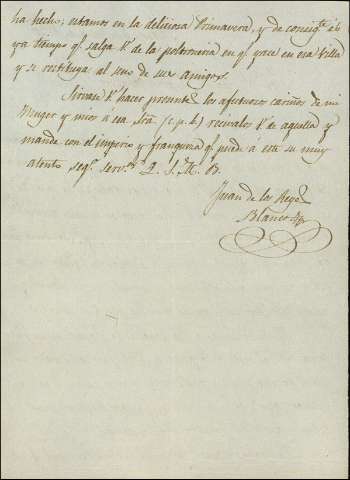 ha hecho; estamos en la deliciosa Primavera, y de consigte. es
ya tiempo qe. salga V. de la poltroneria en qe. yace en esa Villa
y se restituya al seno de sus amigos.
Sirvase V. hacer presente los afectuosos cariños de mi
Muger y mios a esa Sra. (c. p. b.) recivalos V. de aquella y
mande con el imperio y franqueza qe. puede á este su muy
atento segº. servr. Q. S. M. B.
Juan de los Reyes
Blanco